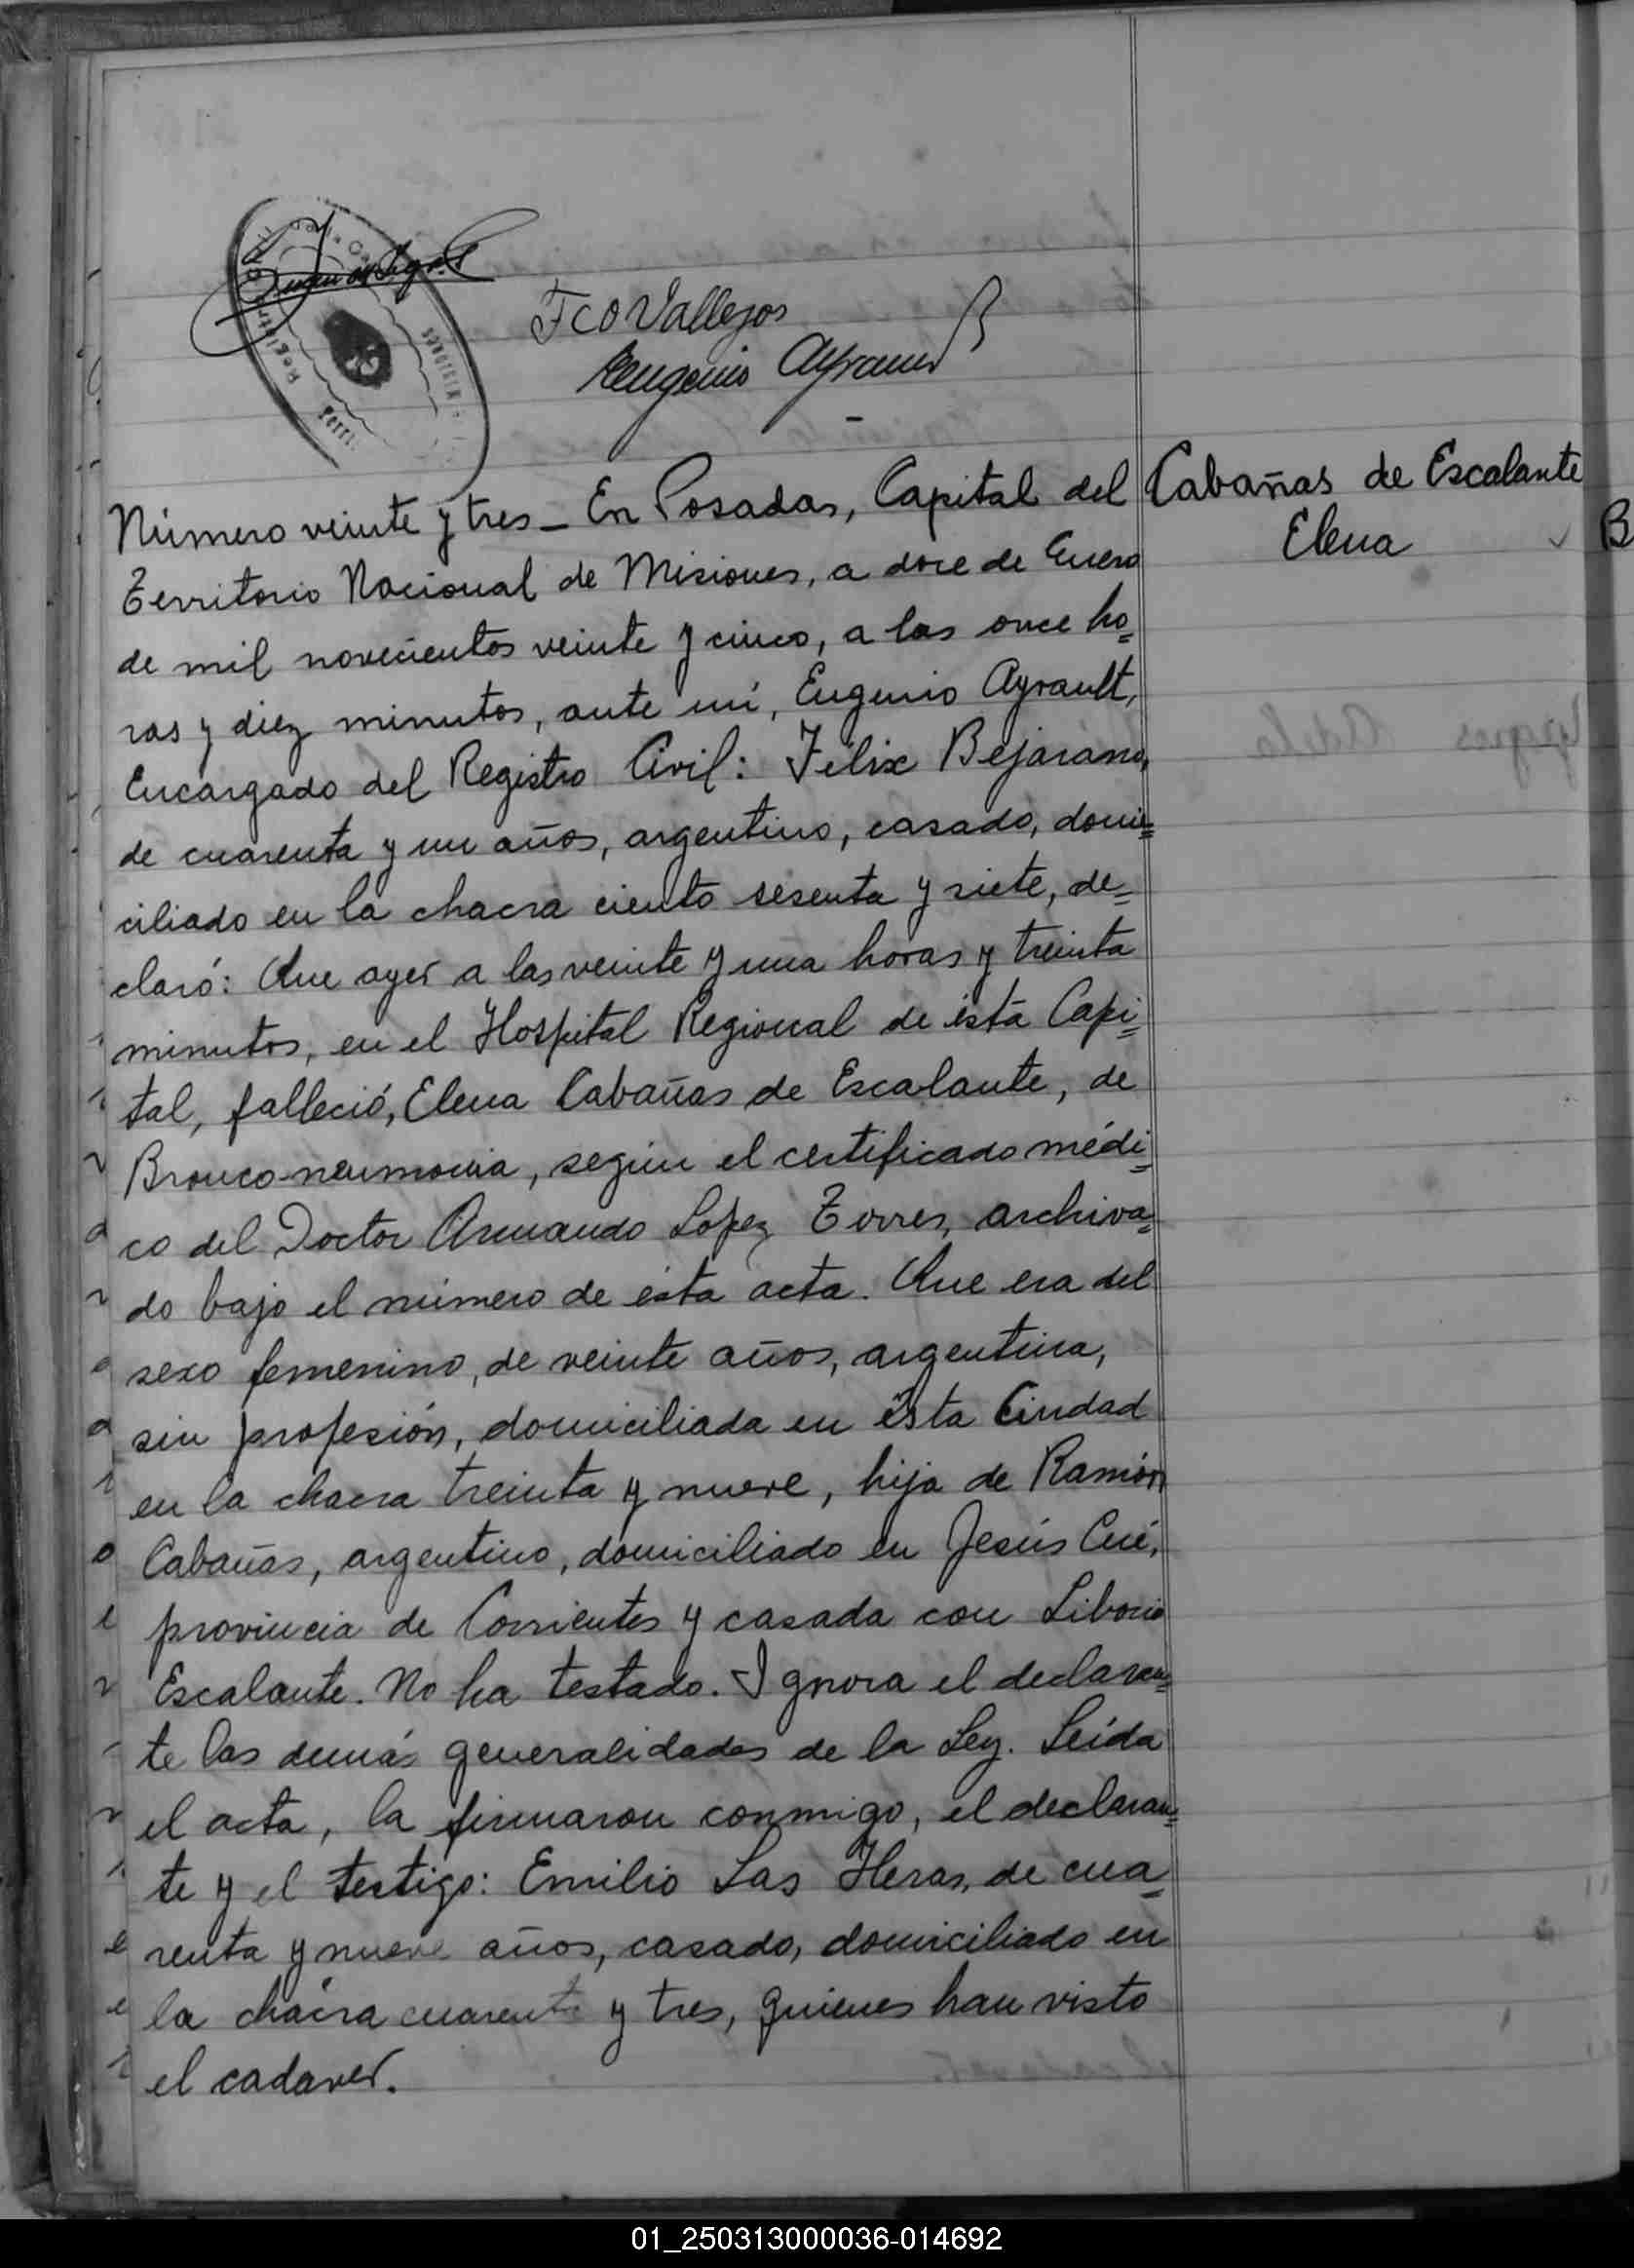 Fco Vallejos
Eugenio Ayrault
Registro Civil
MISIONES
Número veinte y tres_ En Posadas, Capital del
Cabañas de Escalante
Elena
B
Territorio Nacional de Misiones, a doce de Enero
de mil novecientos veinte y cinco, a las once ho=
ras y diez minutos, ante mí, Eugenio Ayrault,
Encargado del Registro Civil: Félix Bejarano,
de cuarenta y un años, argentino, casado, domi=
ciliado en la chacra ciento sesenta y siete, de=
claró: Que ayer a las veinte y una horas y treinta
minutos, en el Hospital Regional de ésta Capi=
tal, falleció, Elena Cabañas de Escalante, de
Bronco-neumonia, según el certificado médi=
co del Doctor Armando Lopez Torres, archiva=
do bajo el número de ésta acta. Que era del
sexo femenino, de veinte años, argentina,
sin profesión, domiciliada en ésta Ciudad
en la chacra treinta y nueve, hija de Ramón
Cabañas, argentino, domiciliado en Jesús Cué,
provincia de Corrientes y casada con Liborio
Escalante. No ha testado. Ignora el declaran=
te las demás generalidades de la Ley. Leída
el acta, la firmaron conmigo, el declaran=
te y el testigo: Emilio Las Heras, de cua=
renta y nueve años, casado, domiciliado en
la chacra cuarenta y tres, quienes han visto
el cadaver.
01_250313000036-014692